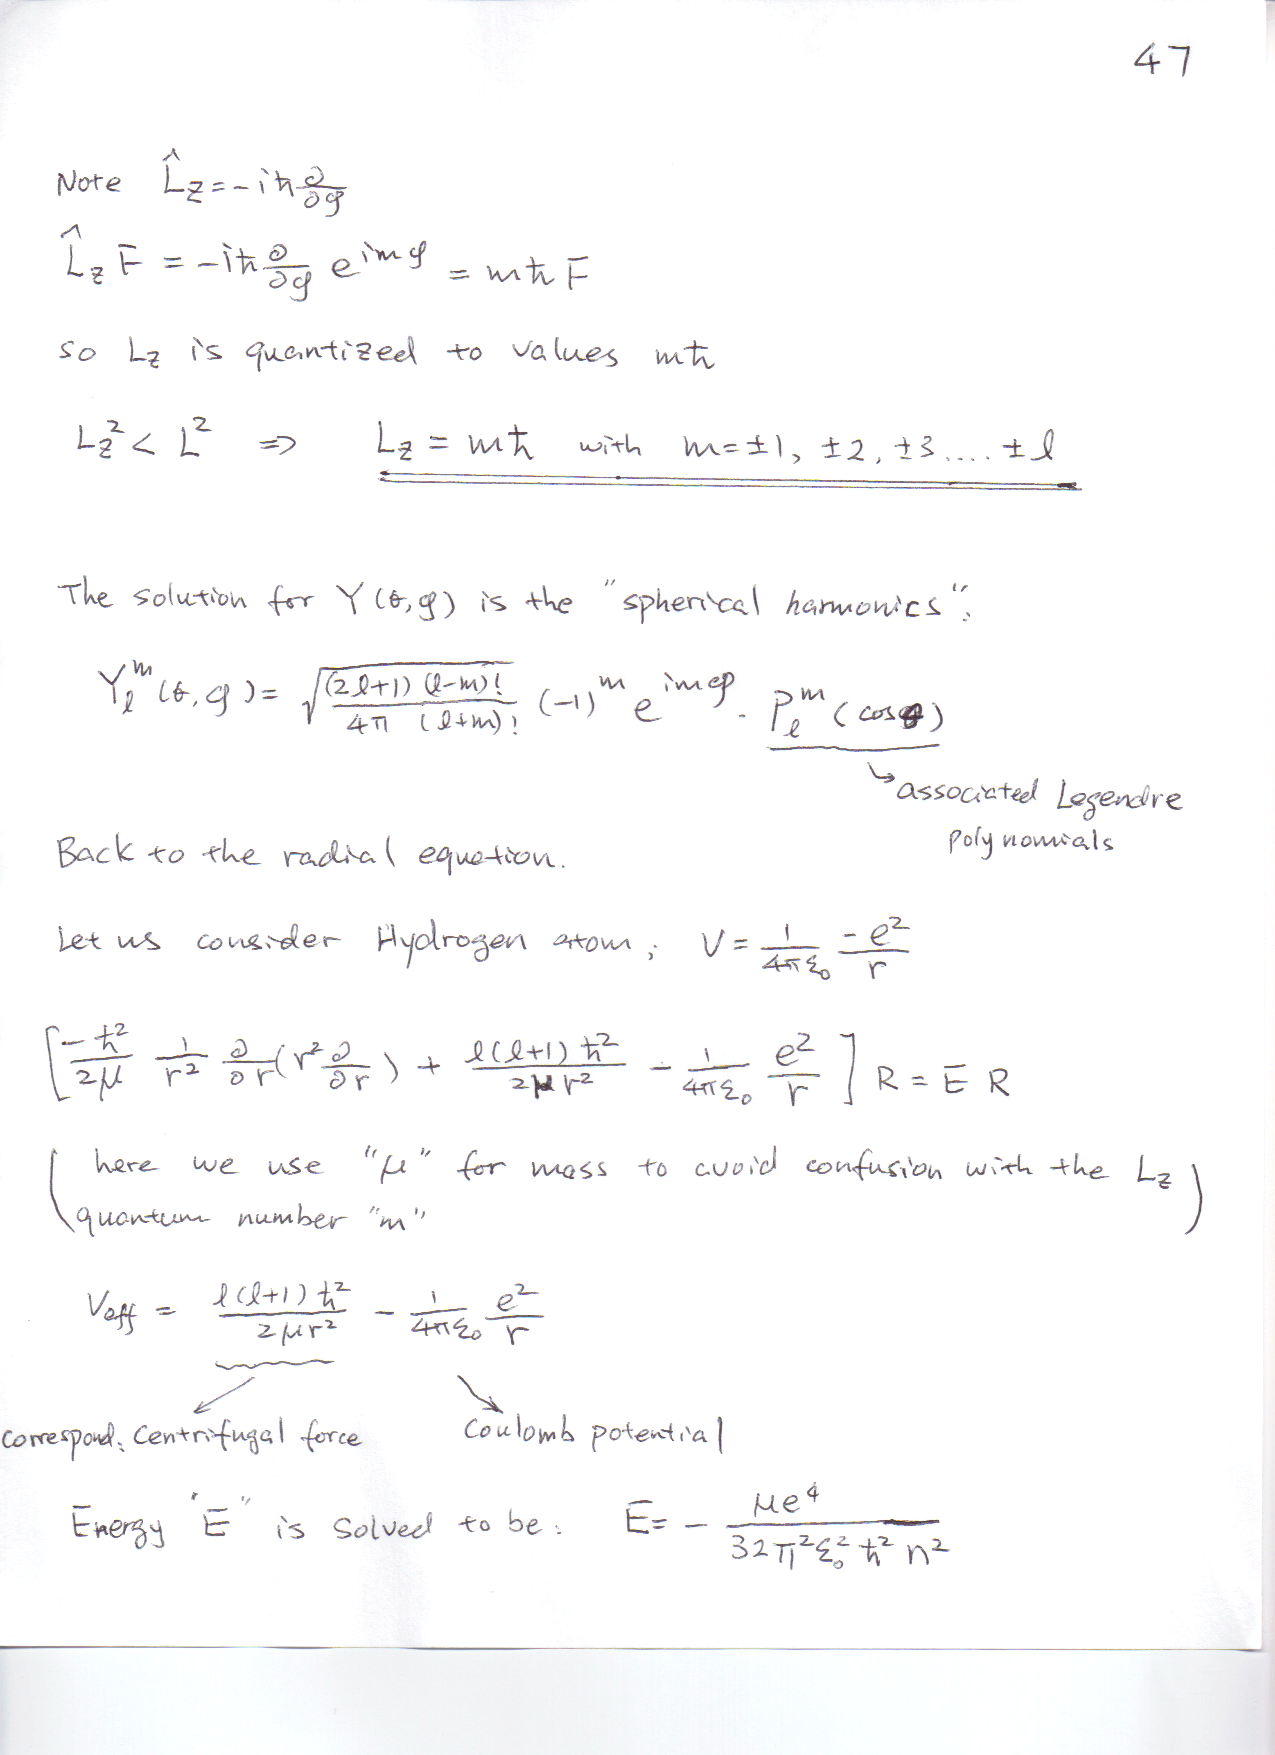 47
Note L̂z = -iħ ∂/∂φ
L̂z F = -iħ ∂/∂φ e^{imφ} = mħ F
so Lz is quantized to values mħ
Lz² < L² ⇒ Lz = mħ with m = ±1, ±2, ±3.... ±l
The solution for Y(θ,φ) is the "spherical harmonics".
Y_l^m(θ,φ) = √((2l+1)(l-m)! / 4π (l+m)!) (-1)^m e^{imφ} · P_l^m(cosθ)
↳ associated Legendre
polynomials
Back to the radial equation.
Let us consider Hydrogen atom; V = 1/4πε₀ -e²/r
[-ħ²/2μ 1/r² ∂/∂r(r² ∂/∂r) + l(l+1)ħ²/2μr² - 1/4πε₀ e²/r] R = E R
(here we use "μ" for mass to avoid confusion with the Lz
quantum number "m")
Veff = l(l+1)ħ²/2μr² - 1/4πε₀ e²/r
correspond. Centrifugal force Coulomb potential
Energy "E" is solved to be: E = - μe⁴/32π²ε₀²ħ²n²